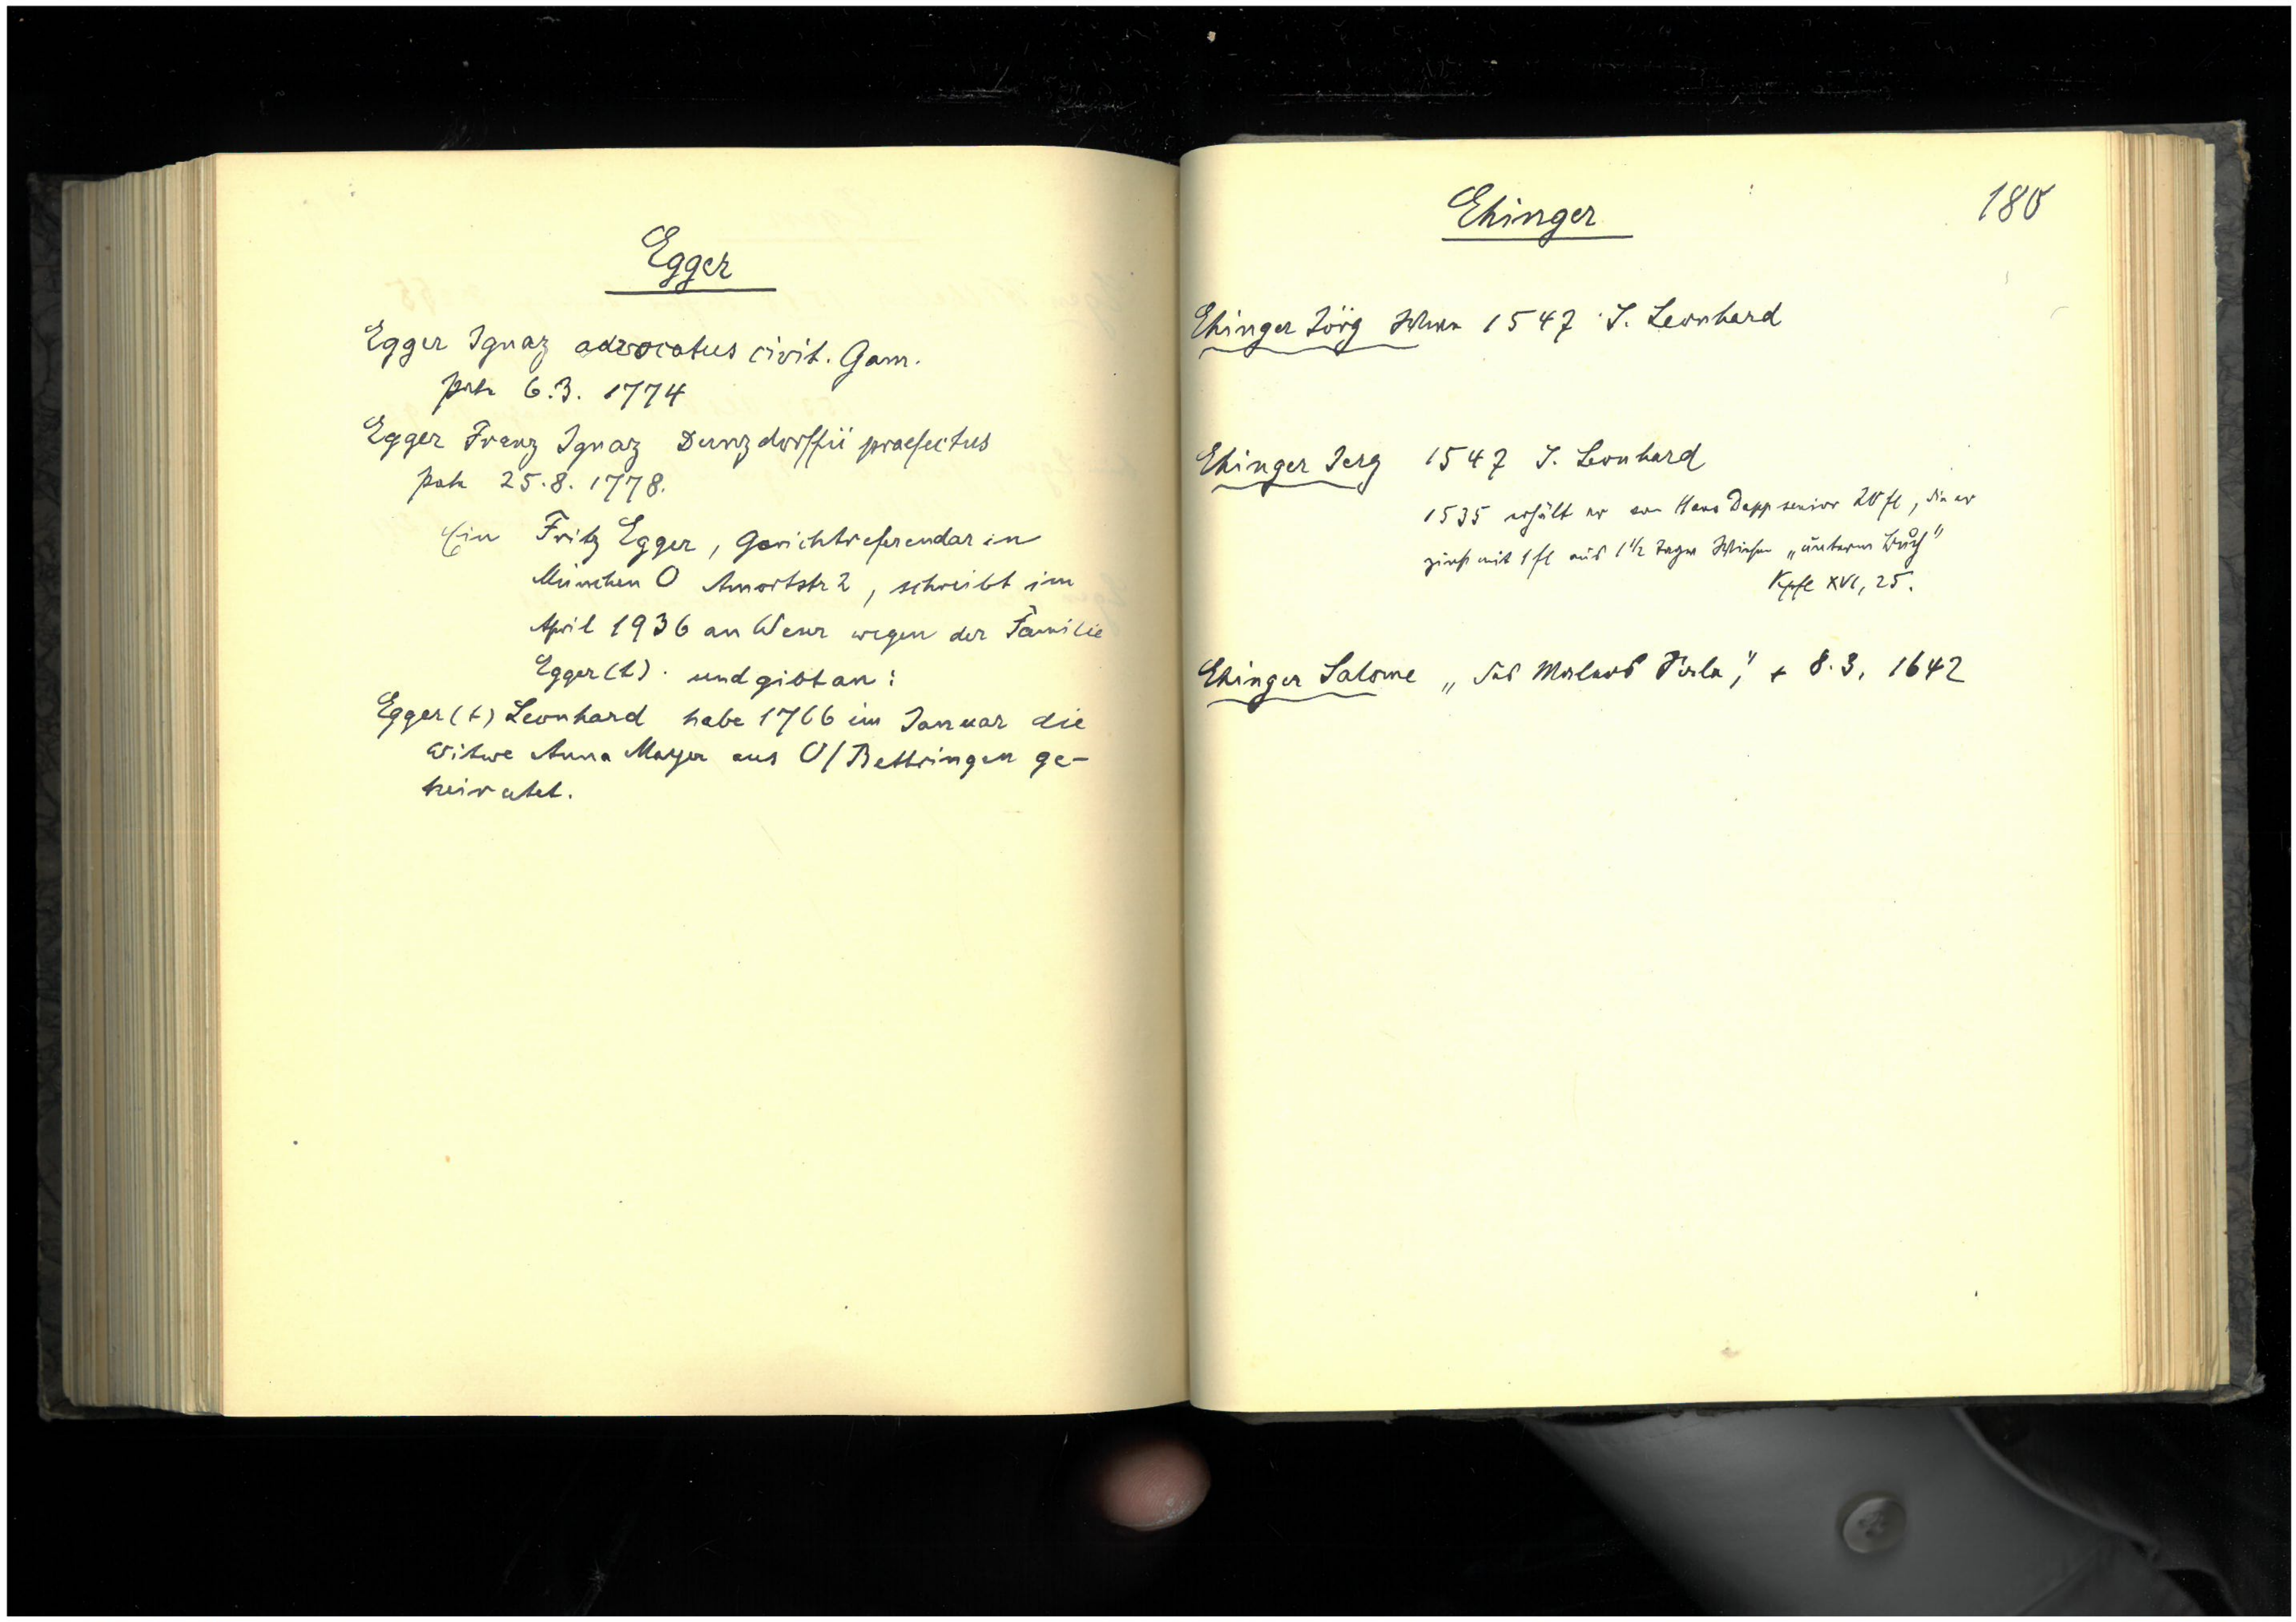 Egger
Egger Ignaz advocatus civit. Gam.
patr 6.3. 1774
Egger Franz Ignaz Dunzdorffii praefectus
patr 25.8.1778.
Ein Fritz Egger, Gerichtsreferendar in
München O Amortstr 2, schreibt im
April 1936 an Weser wegen der Familie
Egger(t). und gibt an:
Egger(t) Leonhard habe 1766 im Januar die
Witwe Anna Mayer aus O/Bettringen ge-
heiratet.
Ehinger
180
Ehinger Jörg 1547 S. Leonhard
Ehinger Jerg 1547 S. Leonhard
1535 erhält er von Hans Dapp senior 20 fl, die er
zinst mit 1 fl aus 1 1/2 Tagw Wiesen „unterm Buch"
Kpfl XVI, 25.
Ehinger Salome „das Malers " + 8.3. 1642